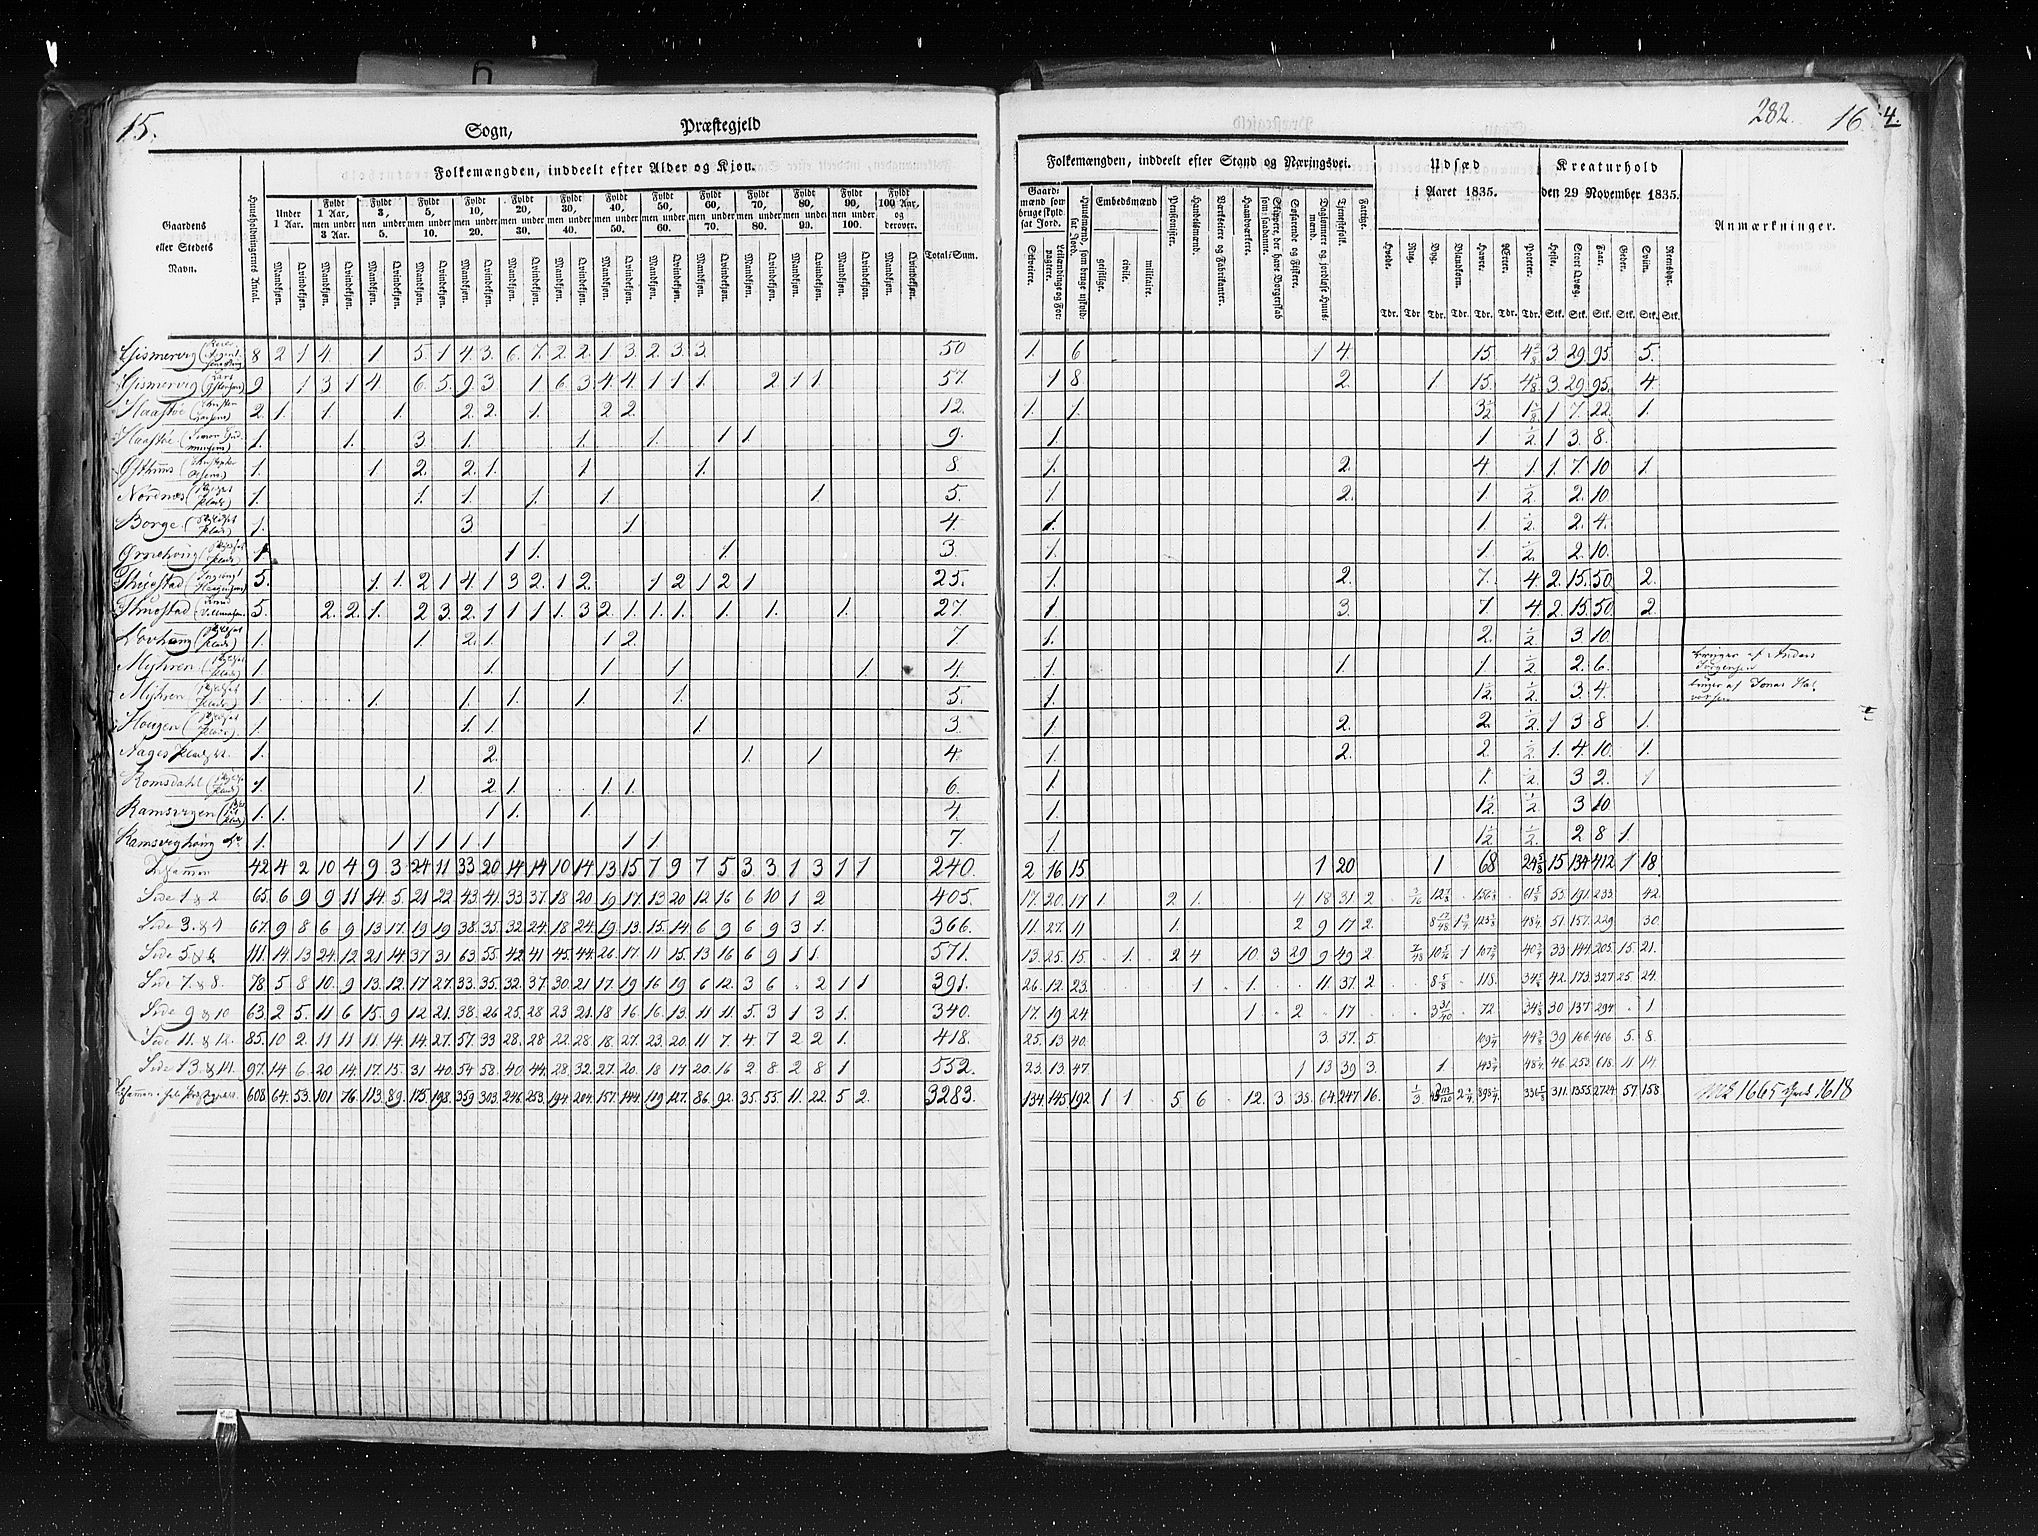 15.
Sogn, Præstegjeld
Folkemængden, inddeelt efter Alder og Kjøn.
Gaardens eller Stedets Navn.
Huusholdningernes Antal.
Under 1 Aar.
Fyldt 1 Aar, men under 3 Aar.
Fyldt 3, men under 5.
Fyldt 5, men under 10.
Fyldt 10, men under 20.
Fyldt 20, men under 30.
Fyldt 30, men under 40.
Fyldt 40, men under 50.
Fyldt 50, men under 60.
Fyldt 60, men under 70.
Fyldt 70, men under 80.
Fyldt 80, men under 90.
Fyldt 90, men under 100.
Fyldt 100 Aar, og derover.
Total/Sum.
Mandkjøn. Qvindekjøn.
Gismervig 8 2 1 4 1 5 1 4 3. 6. 7. 2 2. 1 3. 2. 3 3. 50
Gismervig 9 1 3 1 4 6. 5. 9 3 1 6 3 4. 4. 1 1 1. 2 1 1. 57.
Haastøe 2. 1. 1. 1. 2 2. 1. 2 2. 12.
Haastøe 1. 1. 3 1. 1. 1. 1 1. 9.
1. 1 2. 2. 1. 1 1. 8.
Nordnæs 1. 1. 1. 1. 1. 1. 5.
Borge 1. 3 1. 4.
1. 1 1. 1. 3.
5. 1. 1. 2 1 4. 1 3 2. 1 2. 1 2 1 2 1 25.
5. 2. 2. 1. 2 3 2. 1 1 1 1. 3 2. 1. 1. 1. 1. 1. 1. 27.
1. 1. 2. 1. 1 2. 7
Myhren 1. 1. 1. 1. 1. 4.
Myhren 1. 1. 1. 1. 1. 1. 5.
Hougen 1. 1. 1. 1. 3
Aages Plads 1. 2. 1. 1 4.
Romsdahl 1. 1. 2 1. 1. 1. 6.
Ramsvigen 1. 1. 1 1. 1. 4.
Ramsvighoug 1. 1 1 1 1. 1. 1 1. 7.
42 4 2 10 4 9 3 24 11 33 20 14 14 10 14 13 15 7 9 7 5 3 3 1 3 1 1 240.
Side 1 & 2 65. 6 9 9 11 14. 5. 21 22 43. 41. 33 37. 18 20. 19 17. 13 20 12 16 6 10 1 2 405.
Side 3. & 4 67. 9 8 6 9 13 17. 19 19. 38. 35. 32 24. 18 24. 19. 13. 15. 14 6 9 6 9 3 1. 366.
Side 5 & 6 111. 14. 13 24. 12 21 14 37 31 63. 55. 42 41 45. 44. 26. 17. 11 15. 13 16 6 9 1 1. 571.
Side 7. & 8. 78 5 8 10. 9 13. 12. 17 27. 33. 35. 32. 37. 30 21 17. 19 16 19 6 12. 3 6 2 1 1 391.
Side 9 & 10 63. 2 5. 11 6 15. 9 12 21. 38. 26 25. 28 23 21. 18 16 16. 13. 11 11. 5. 3 1 3 1. 340.
Side 11. & 12. 85. 10 2. 11 11 11. 14. 14 27. 57. 33 28. 28 22. 28. 18. 27. 23. 20. 11 7 4 7 2 2 1. 418.
Side 13. & 14. 97. 14 6. 20 14. 17. 15. 31 40. 54 58. 40. 44. 28. 32. 27. 20. 18 17. 20 16 2 8 2 8 1 552.
608 64. 53. 101 76. 113. 89. 175. 198. 359 303. 246. 253. 194. 204. 157. 144. 119. 127. 86. 92. 35. 55. 11. 22. 5 2. 3283.
282. 16. 4.
Folkemængden, inddeelt efter Stand og Næringsvei.
Udsæd i Aaret 1835.
Kreaturhold den 29 November 1835.
Anmærkninger.
Gaardmænd som bruge skyldsat Jord.
Selveiere.
Leilændinge og Forpagtere.
Huusmænd, som bruge uskyldsat Jord.
Embedsmænd
geistlige. civile. militaire.
Pensionister.
Handelsmænd.
Værkseiere og Fabrikanter.
Haandværkere.
Skippere, der have Borgerskab som saadanne.
Søfarende og Fiskere.
Dagleiere og jordløse Huusmænd.
Tjenestefolk.
Fattige.
Hvede. Rug. Byg. Blandkorn. Havre. Erter. Poteter. Heste. Stort Qvæg. Faar. Geder. Sviin. Rensdyr.
Tdr. Tdr Tdr. Tdr. Tdr. Tdr. Tdr. Stk. Stk. Stk. Stk. Stk. Stk.
1. 6 1 4. 15. 3 29. 95. 5.
1 8 2. 1 15. 3. 29. 95. 4.
1. 1. 3½ 1 7. 22. 1.
1. 1 ½ 1 3 8.
1. 2. 4. 1 1. 7. 10 1.
1. 2. 1. ½ 2. 10
1. 1. ½ 2. 4.
1. 1. ½ 2. 10.
1. 2. 7. 4. 2. 15. 50. 2.
1. 3. 7. 4. 2. 15. 50. 2.
1. 2. ½ 3 10.
1. 1. 1 ½ 2. 6. bruges af Anders Jørgensen
1. 1½ ½ 3. 4. bruges af Jonas Halvorsen
1. 2. 2. ½ 1 3 8 1.
1. 2. 2 ½ 1. 4. 10. 1.
1. 1. ½ 3 2. 1
1. 1½ ½ 3 10
1 1½ ½ 2 8 1.
2 16 15 1 20 1 68 15 134 412 1 18.
17. 20. 17 1. 2 1. 4 18 31. 2 55 191. 233 42.
11. 27. 11 1. 2 9 17 2. 51 157. 229 30.
13. 25. 15. 1. 2 4 10. 3 29 9 49. 2 1 33 144 205. 15. 21.
26. 12. 23. 1 1. 11. 37. 2 118. 42. 173. 327 25 24.
17. 19 24 1 2 17 72 30 137 294 1
25. 13 40. 3 37. 5. 39 166 406 5 8.
23. 13 47. 1 13 39 3. 1 46 253 618. 11 14.
134. 145 192 1 1 5 6 12. 3 38. 64. 247 16. 311. 1355 2724 57. 158 Mk 1665 Qvk 1618